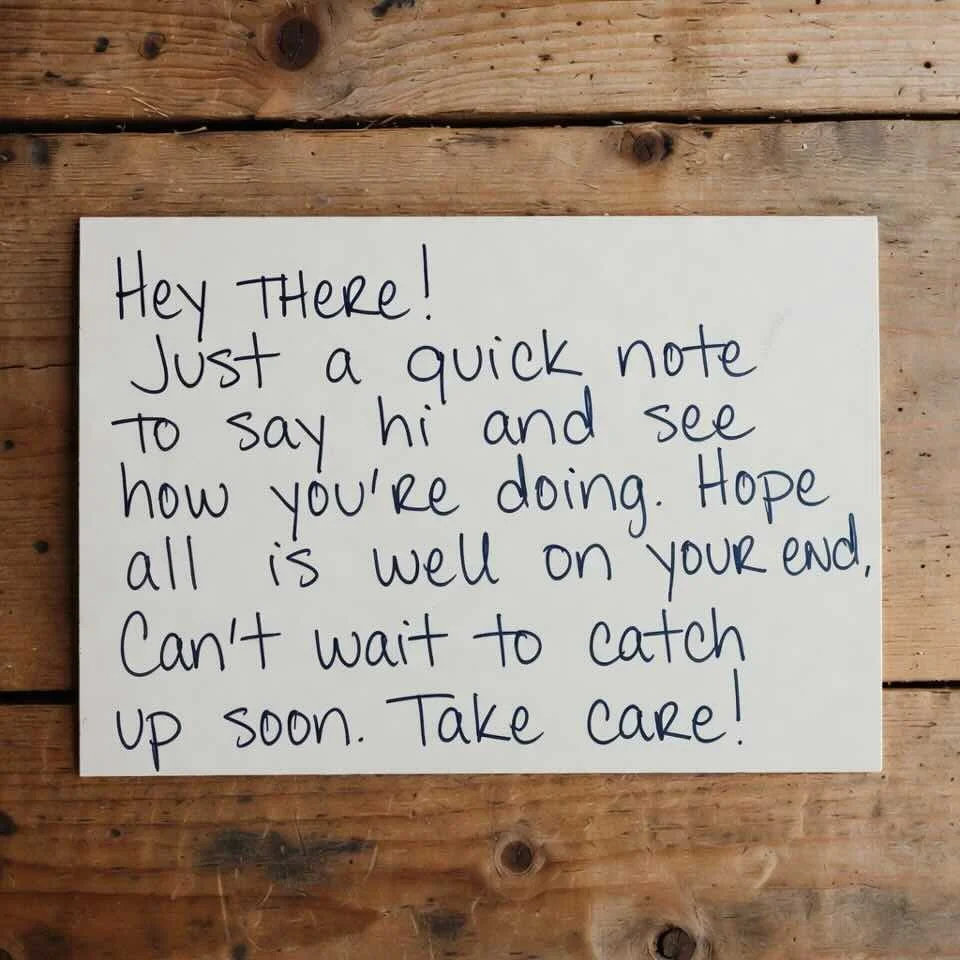 Hey THeRe!
Just a quick note
to say hi and see
how you're doing. Hope
all is well on your end,
Can't wait to catch
up soon. Take care!